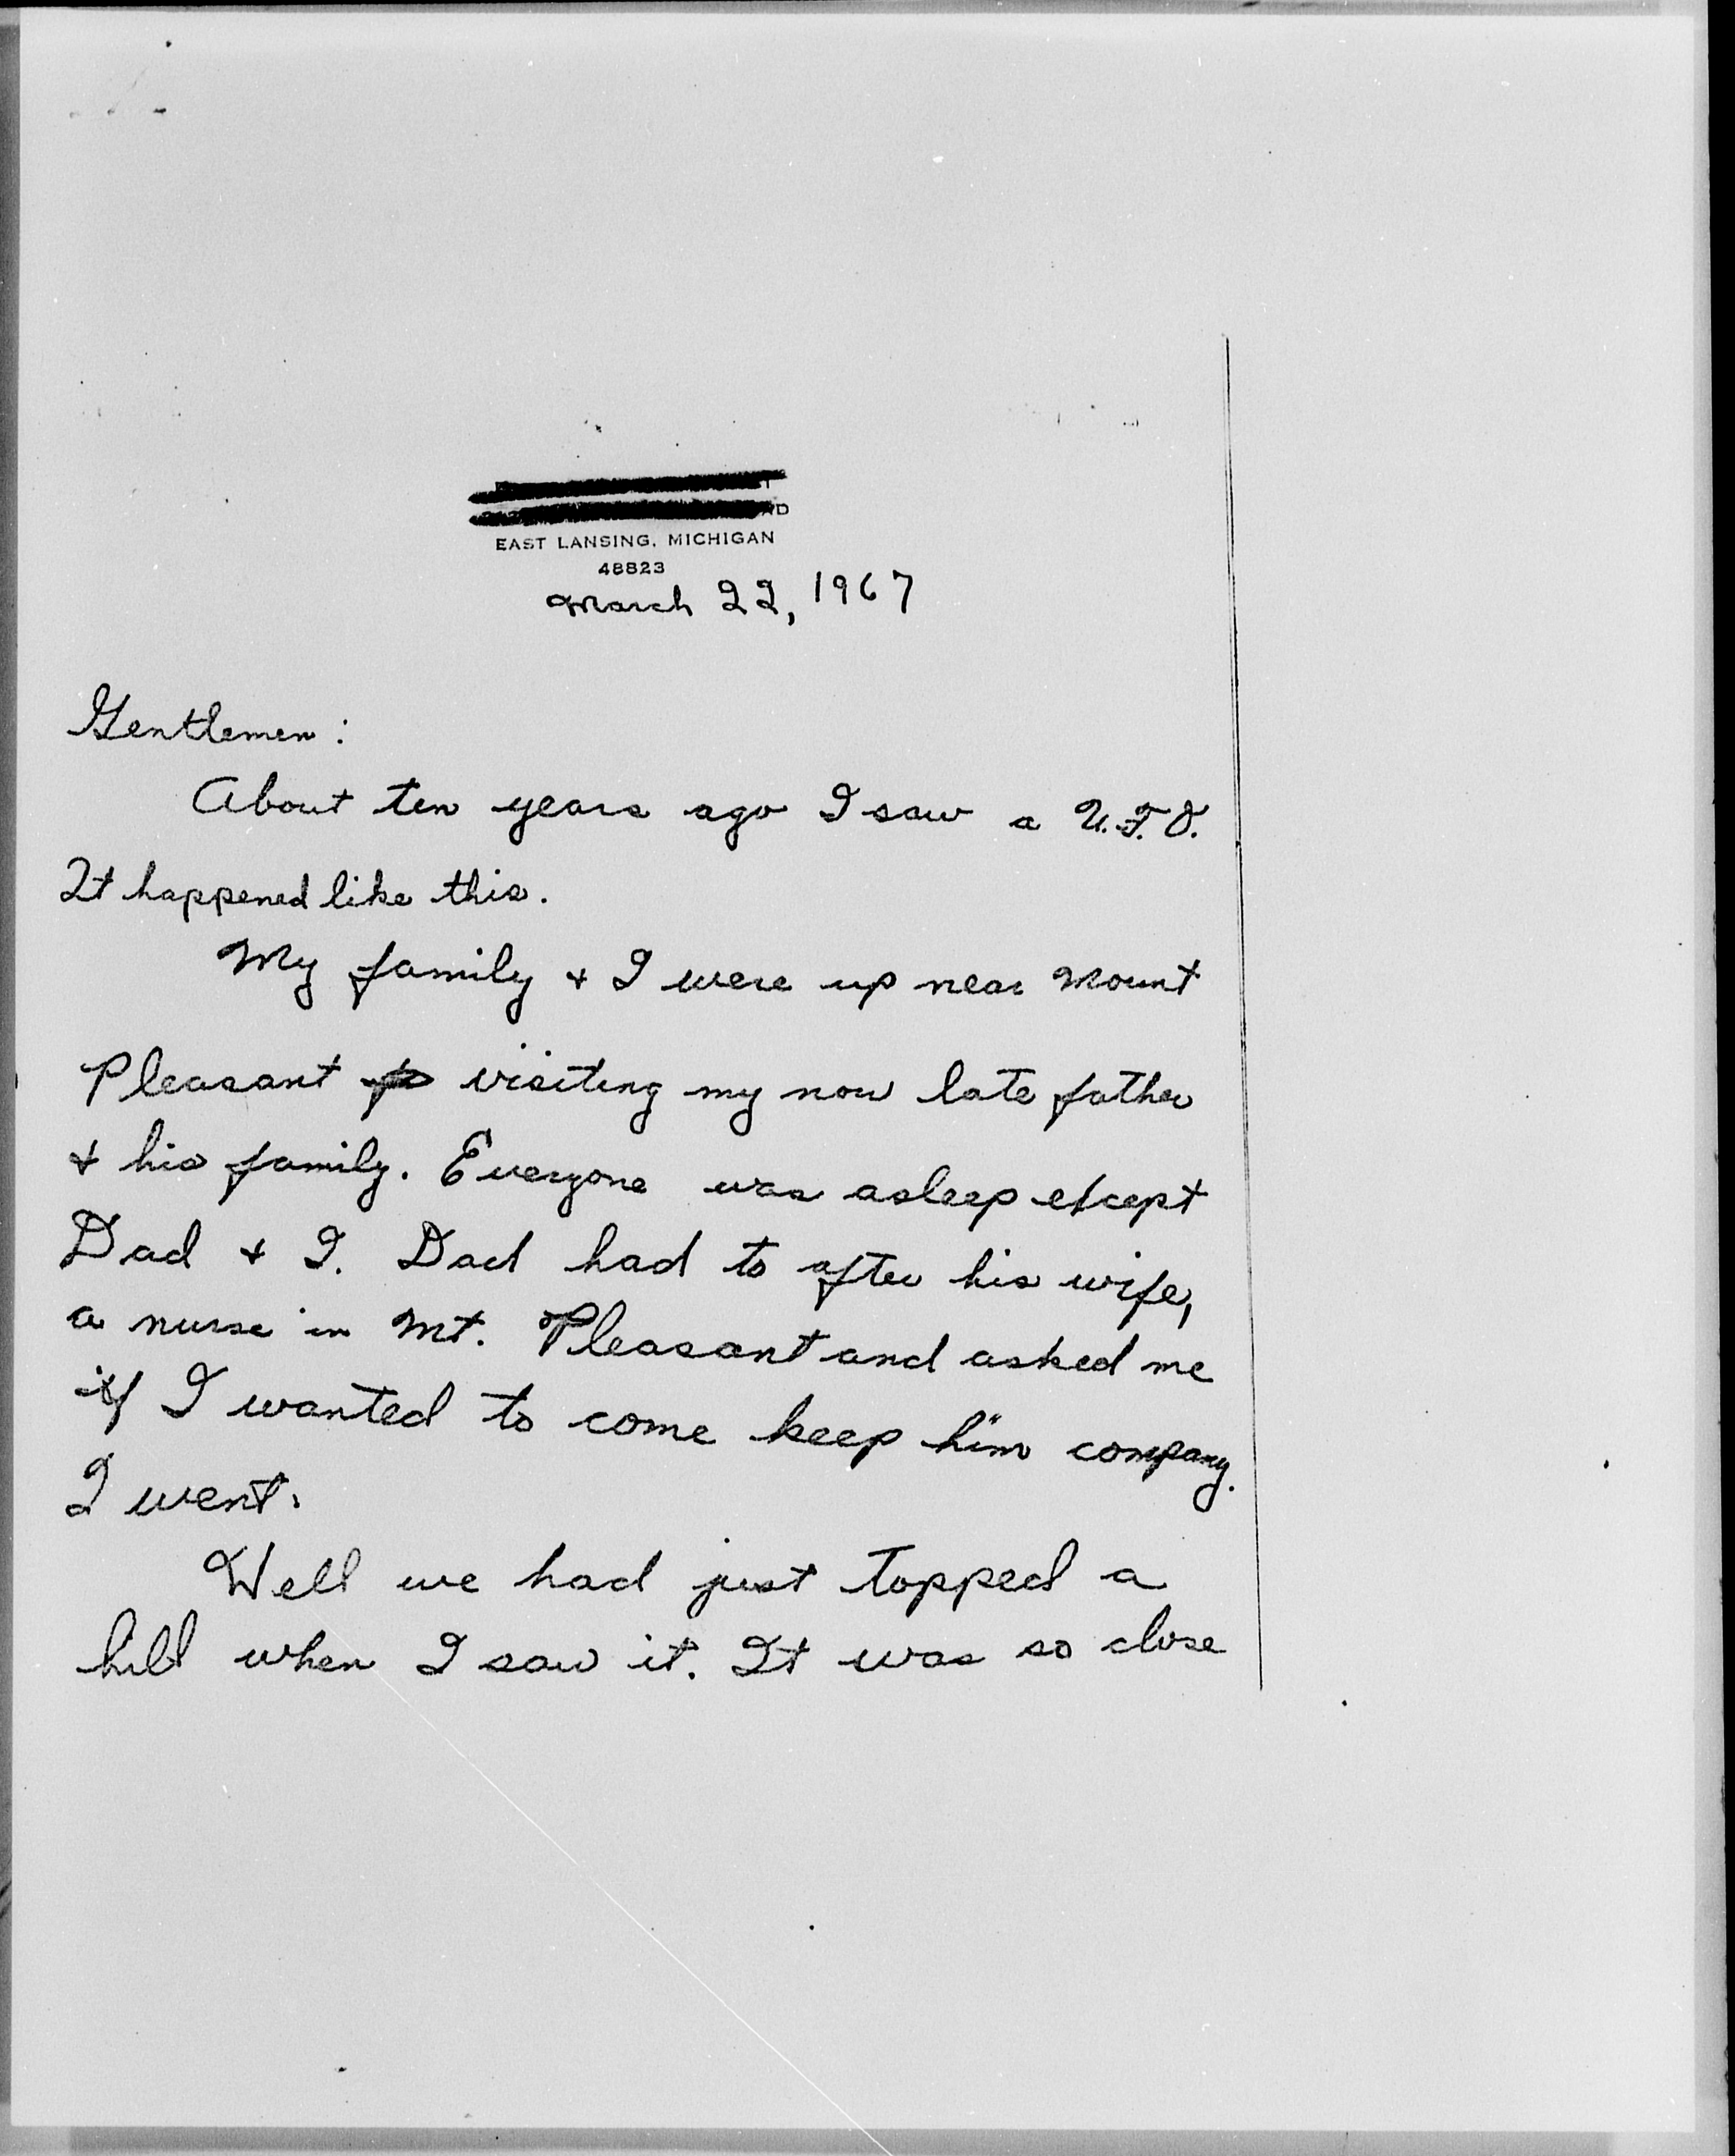 EAST LANSING, MICHIGAN
48823
March 22, 1967
Gentlemen:
About ten years ago I saw a U.F.O.
It happened like this.
My family + I were up near Mount
Pleasant visiting my now late father
+ his family. Everyone was asleep except
Dad + I. Dad had to after his wife,
a nurse in Mt. Pleasant and asked me
if I wanted to come keep him company.
I went.
Well we had just topped a
hill when I saw it. It was so close